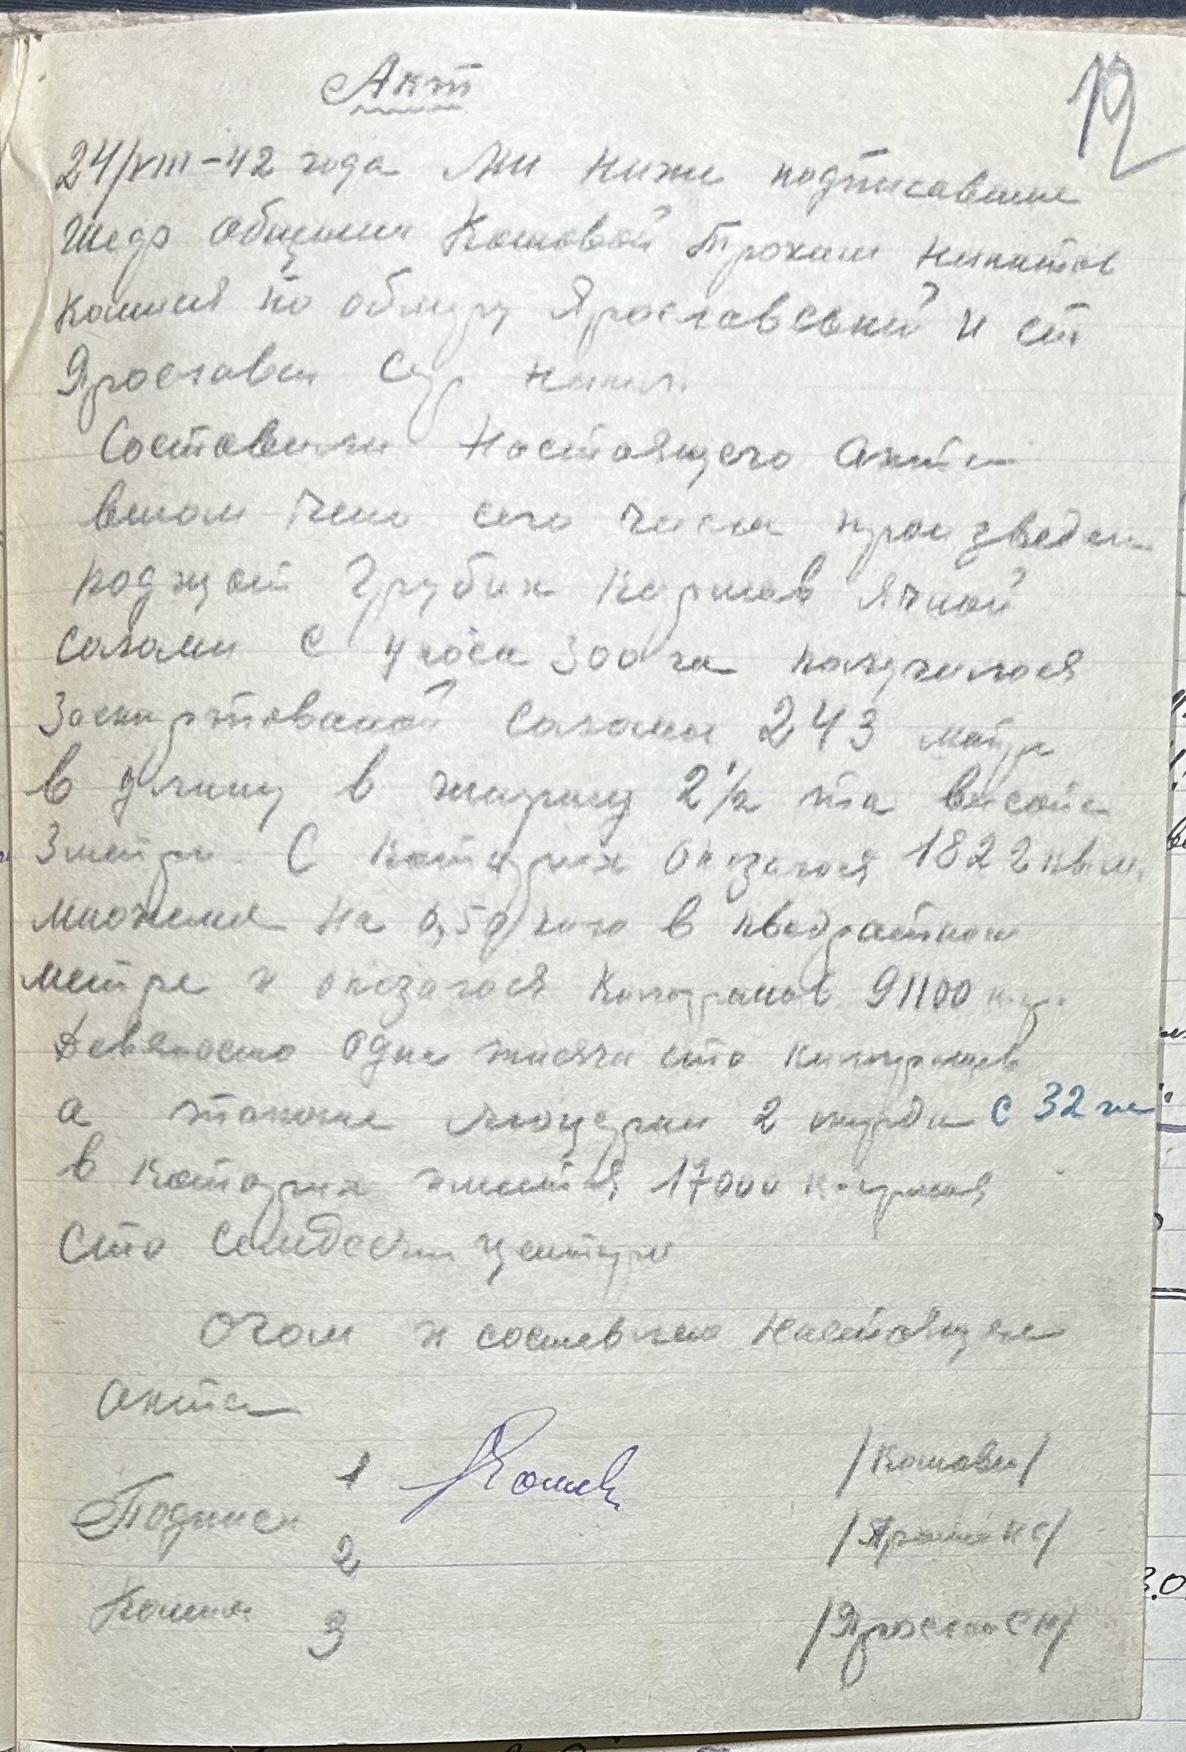 Акт
12
24/VIII-42 года Ми ниже подписавшие
общини Кошовой Трохим
комисия по обмеру Ярославський и ст
Ярославец
Составили настоящего акта
втом что сего числа произведен
грубих кормов ячной
соломи с укоса 300 га получилося
заскиртованой соломи 243 метра
в длину в ширину 2½ та висота
3 метри С которих оказалося 1822 кв. м.
множеня на 0,50 кого в квадратном
метре и оказалося килограмов 91100 к.гр.
Девяносто одна тисяча сто килограмов
а также люцерни 2 скирди с 32 га
в которих имеется 17000 к.грамов
Сто семдесят центнери
Очом и составлено настоящего
акта
1 Кошов /Кошови/
Подписи
2
Комисия 3